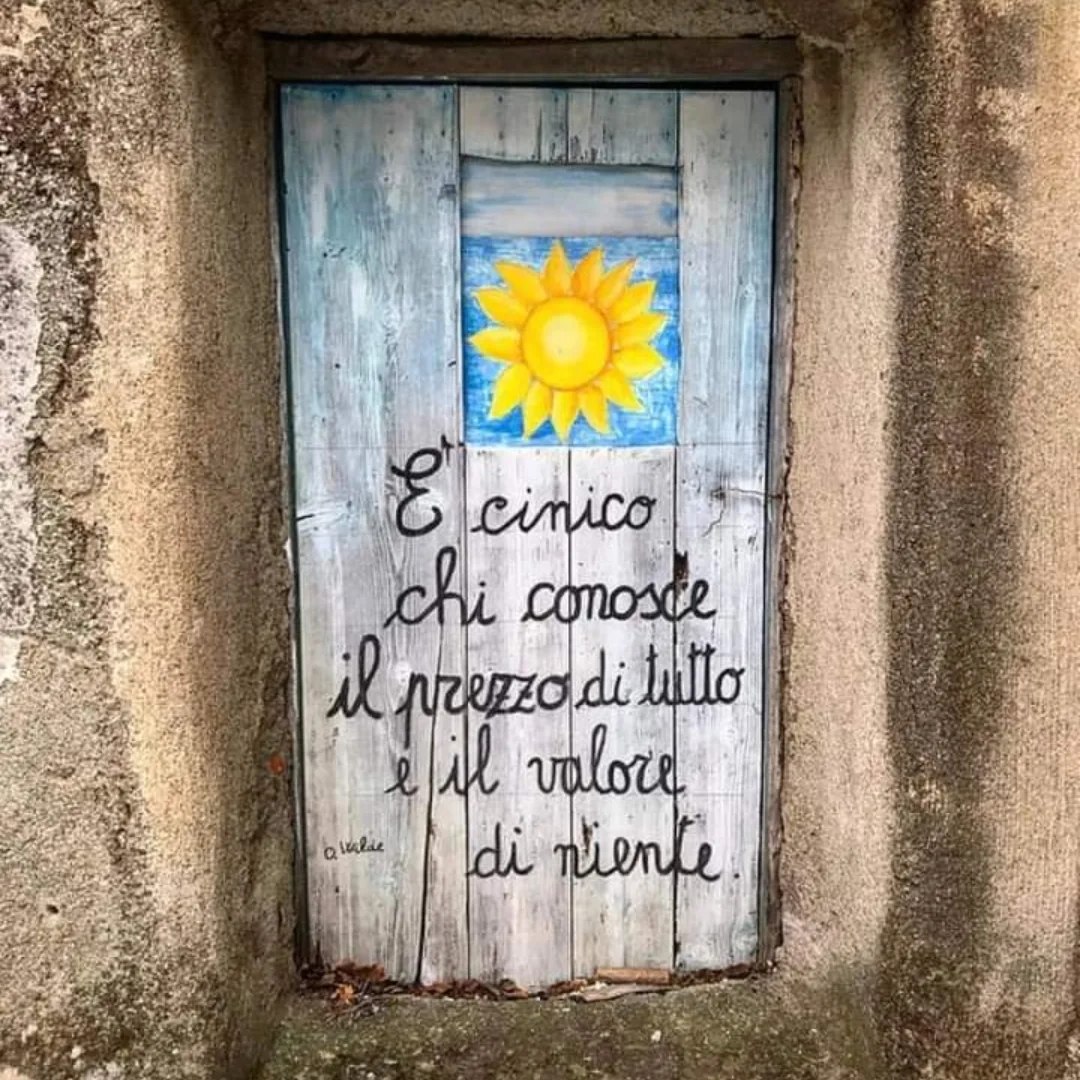 E' cinico
chi conosce
il prezzo di tutto
e il valore
di niente.
O. Wilde